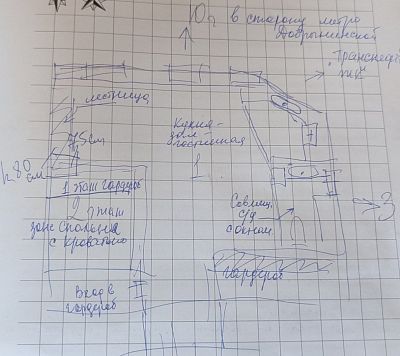 Юг в сторону метро
Добрынинской
"Транснефть
лестница
75см
h 80
см
Кухня-
зал-
гостинная
1
1 этаж гардероб
2 этаж
зона Спальня
с кроватью
Совмещ.
с/у
с окном
З
гардероб
Вход в
гардероб